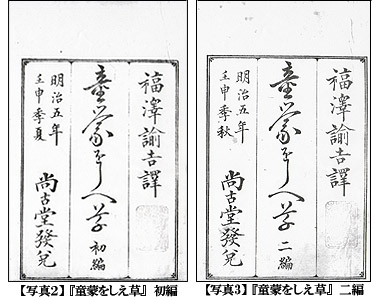 福澤諭吉譯
童蒙をしへ草 初編
明治五年
壬申季夏
尚古堂發兌
【写真2】『童蒙をしえ草』 初編
福澤諭吉譯
童蒙をしへ草 二編
明治五年
壬申季秋
尚古堂發兌
【写真3】『童蒙をしえ草』 二編